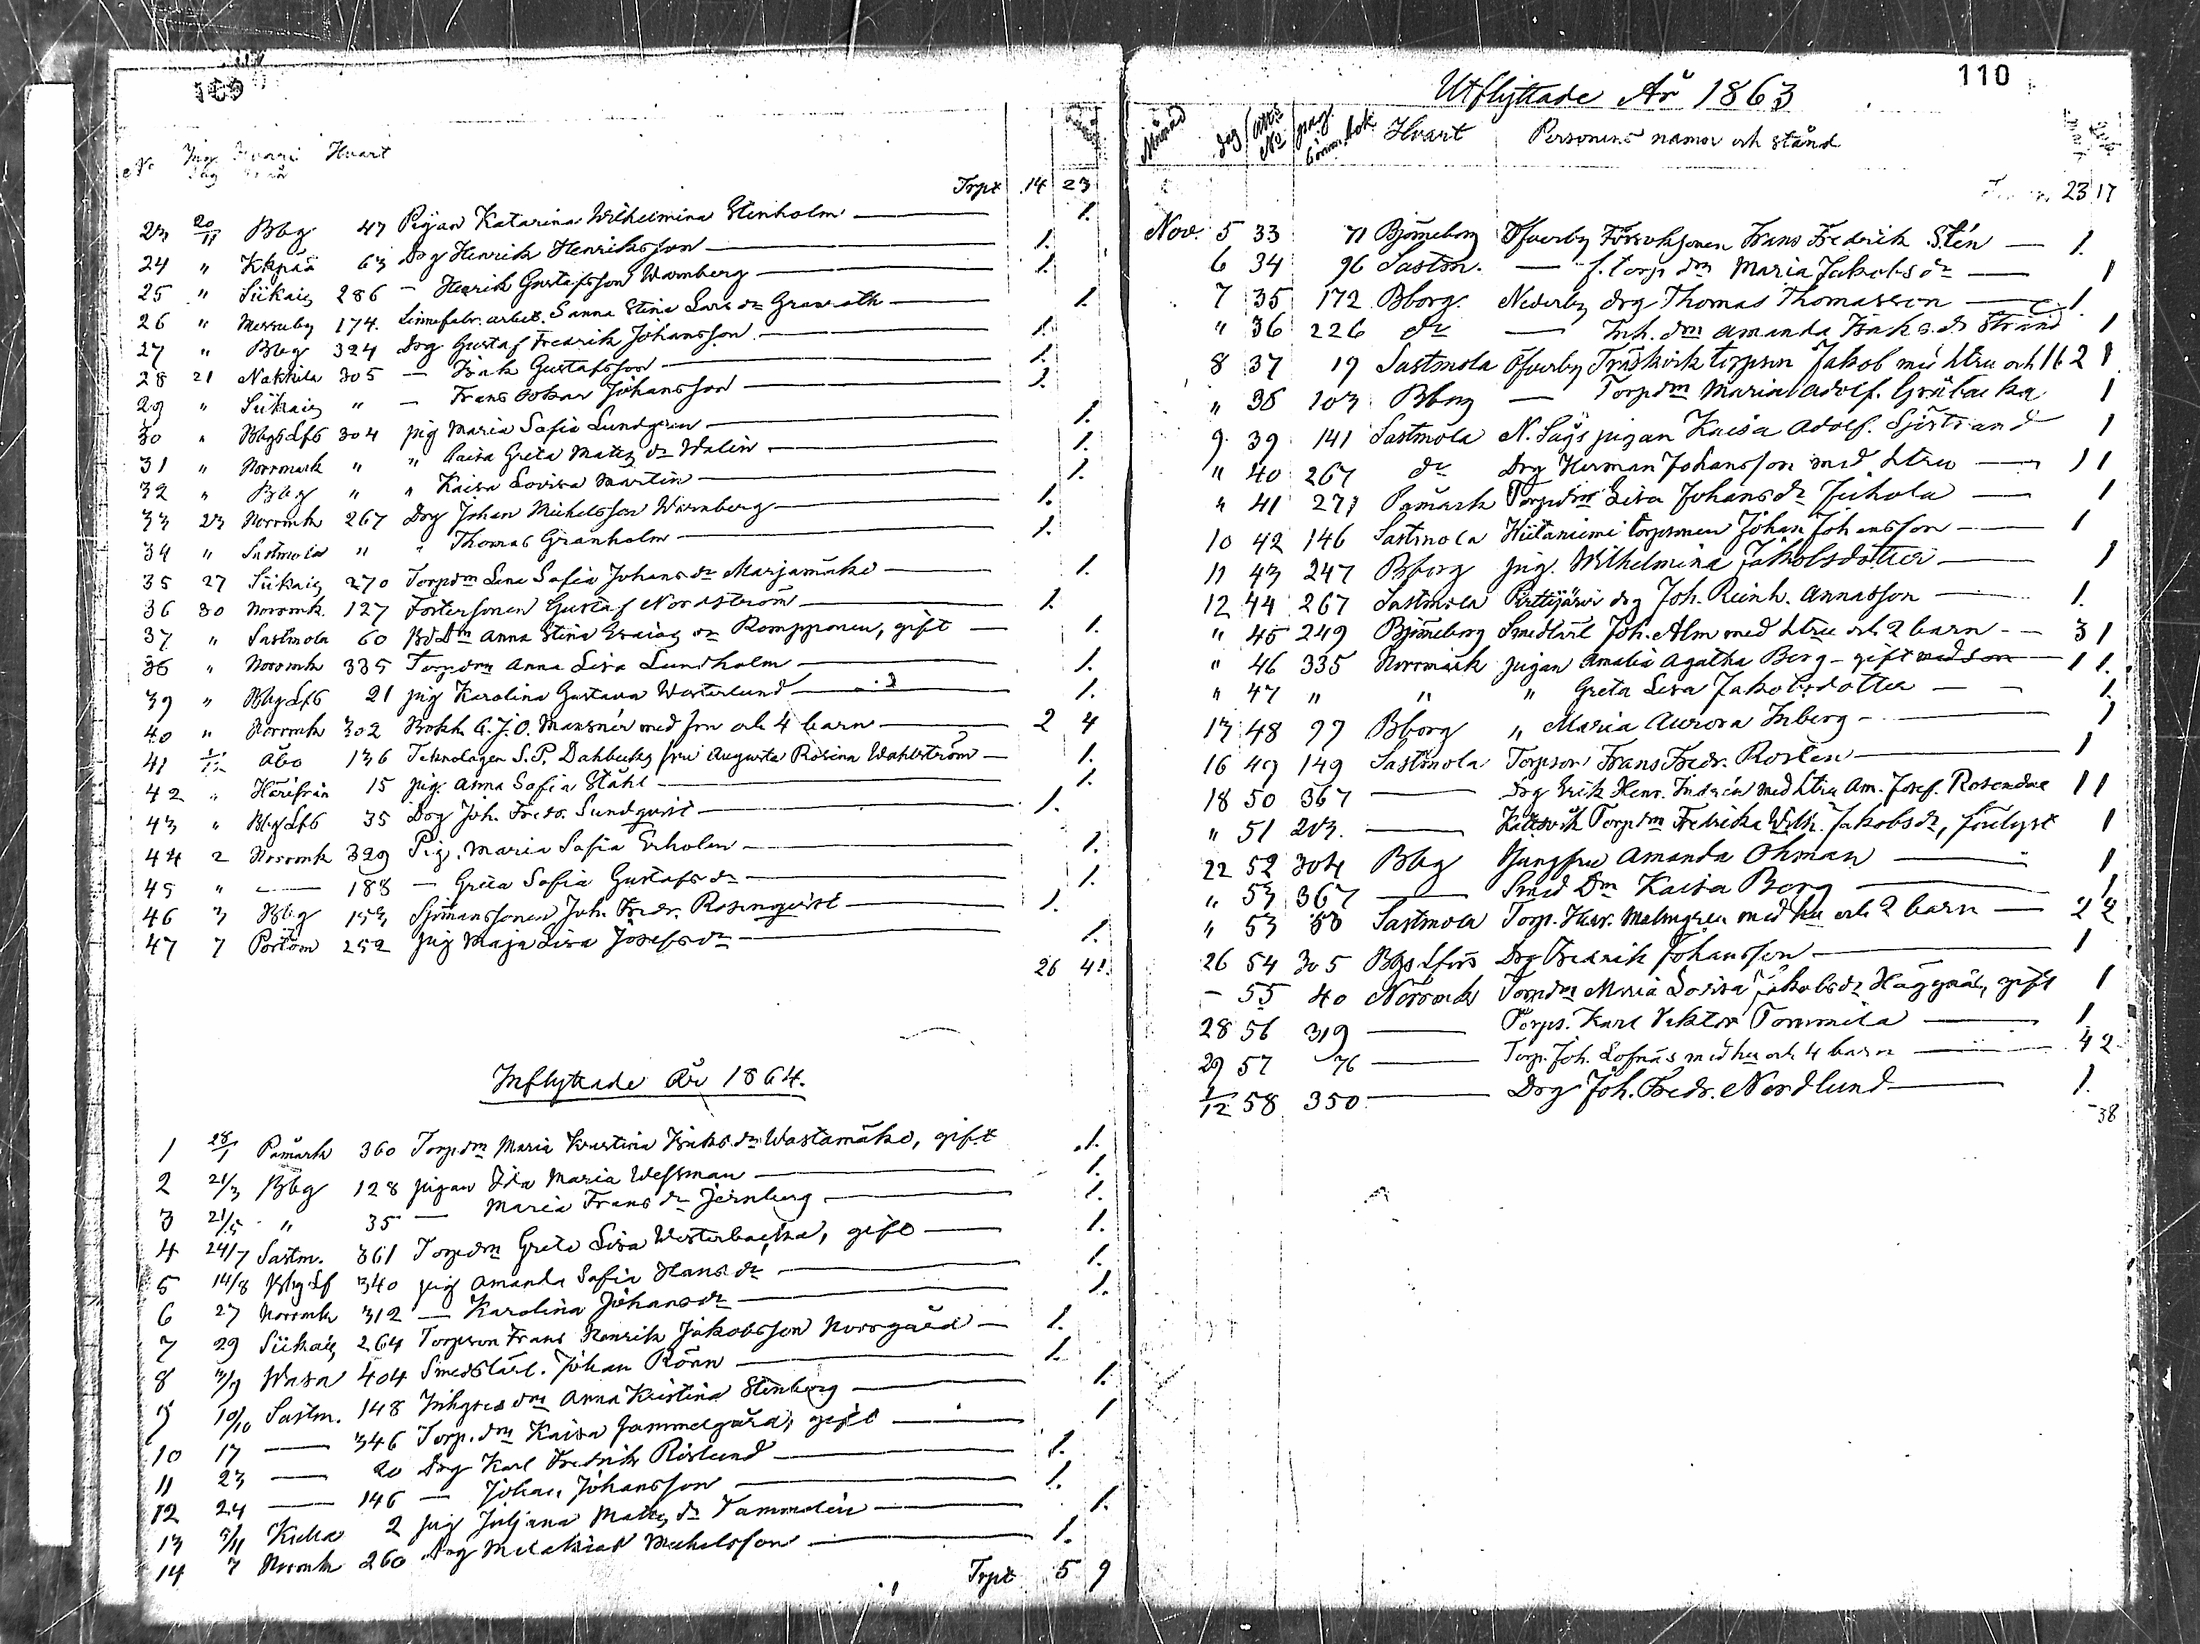 109
No Ing. dag Hvari från Hvart
Trpt 14 23
23 20/11 Bbg 47 Pigan Katarina Wilhelmina Stenholm 1.
24 " 63 Drg Henrik Henriksson 1.
25 " Siikais 286 — Henrik Gustafsson Warnberg 1.
26 " 174. Linnefabr. arbet. Sanna Stina Lars dr Granroth 1.
27 " Bbg 324 Drg Gustaf Fredrik Johansson 1.
28 21 Nakkila 305 — Isak Gustafsson 1.
29 " Siikais " — Frans Oskar Johansson 1.
30 " BbgsLfs 304 pig Maria Sofia Lundgren 1.
31 " Norrmark " " Caisa Greta Mats dr Walin 1.
32 " Bbg " " Kaisa Lovisa Martin 1.
33 23 Norrmk 267 Drg Johan Michelsson Warnberg 1.
34 " Sastmola " " Thomas Granholm 1.
35 27 Siikais 270 Torpdrn Lena Sofia Johans dr Marjamäki 1.
36 30 Norrmk. 127 Fostersonen Gustaf Nordström 1.
37 " Sastmola 60 Bddrn Anna Stina Esaias dr Romppanen, gift 1.
38 " Norrmk 335 Torpdrn Anna Lisa Lundholm 1.
39 " BbgLfs 21 pig Karolina Gustava Westerlund 1.
40 " Norrmk 302 Bokh. G. J. O. Mansnér med fru och 4 barn 2 4
41 1/12 Åbo 136 Teknologen S. P. Dahlbecks fru Augusta Rosina Wahlström 1.
42 " Härifrån 15 pig. Anna Sofia Ståhl 1.
43 " BbgLfs 35 Drg Joh. Fredr. Sundqvist 1.
44 2 Norrmk 329 Pig. Maria Sofia Erholm 1.
45 " — 188 — Greta Sofia Gustafs dr 1.
46 3 Bbg 153 Sjömanssonen Joh. Fredr. Rosenqvist 1.
47 7 Portom 252 pig Maja Lisa Josefs dr 1.
26 41.
Inflyttade År 1864.
1 28/1 Påmark 360 Torpdrn Maria Kristina Isaks dr Wastamäki, gift 1.
2 21/3 Bbg 128 pigan Ida Maria Wessman 1.
3 21/5 " 35 — Maria Frans dr Jernberg 1.
4 24/7 Sastm. 361 Torpdrn Greta Lisa Westerbacka, gift 1.
5 14/8 BbgLf 340 pig Amanda Sofia Hans dr 1.
6 27 Norrmk 312 — Karolina Johans dr 1.
7 29 Siikais 264 Torpson Frans Henrik Jakobsson Norrgård 1.
8 Wasa 404 Smedslärl. Johan Rönn 1.
9 10/10 Sastm. 148 Inhyses drn Anna Kristina Stenberg 1.
10 17 — 346 Torp. drn Kaisa Gammelgård, gift 1
11 23 — 20 Drg Karl Fredrik Röslund 1.
12 24 — 146 — Johan Johansson 1.
13 5/11 2 pig Juljana Mats dr Tammelin 1.
14 7 Norrmk 260 Drg Michelsson 1.
Trpt 5 9
110
Utflyttade År 1863
Månad dag Attes No pag. i komm. bok Hvart Personens namn och stånd
23 17
Nov. 5 33 71 Björneborg Öfverby Frans Fredrik Stén 1.
6 34 96 Sastm. — f. torp drn Maria Jakobs dr 1
7 35 172 Bborg. Nederby drg Thomas Thomasson 1.
" 36 226 dr — Inh. drn Amanda Isaks dr Strand 1
8 37 19 Sastmola Öfverby Träskvik torpson Jakob med hustru och 1 b 2 1
" 38 103 Bborg — Torpdrn Maria Adolf. Gråbacka 1
9 39 141 Sastmola N. Sågs pigan Kaisa Adolf. Sjöstrand 1
" 40 267 dr Drg Herman Johansson med hstru 1 1
" 41 271 Påmark Torpdrn Lisa Johans dr Jukola 1
10 42 146 Sastmola Hietaniemi torpsonen Johan Johansson 1
11 43 247 Bborg pig. Wilhelmina Jakobsdotter 1
12 44 267 Sastmola Pirttijärvi drg Joh. Reinh. Annasson 1.
" 45 249 Björneborg Smedlärl Joh. Alm med hstru och 2 barn 3 1
" 46 335 Norrmark pigan Amalia Agatha Berg - gift med son 1 1.
" 47 " " " Greta Lisa Jakobsdotter 1.
13 48 97 Bborg " Maria Aurora Inberg 1
16 49 149 Sastmola Torpson Frans Fredr. Rostén 1
18 50 367 — Drg Erik Henr. Indrén med hstru Am. Josef. Rosendal 1 1
" 51 213. — Torpdrn Fredrika Wilh. Jakobs dr, förlyst 1
22 52 304 Bbg Jungfru Amanda Öhman 1
" 53 367 — Smed Drn Kaisa Borg 1
" 53 53 Sastmola Torp. Malmgren med hu och 2 barn 2 2
26 54 305 BbgsLfors Drg Fredrik Johansson 1
— 55 40 Norrmk Torpdrn Maria Lovisa Jakobs dr Häggnäs, gift 1
28 56 319 — Torps. Karl Viktor Tommila 1
29 57 76 — Torp. Joh. Lofnäs med hu och 4 barn 4 2
1/12 58 350 — Drg Joh. Fredr. Nordlund 1.
38